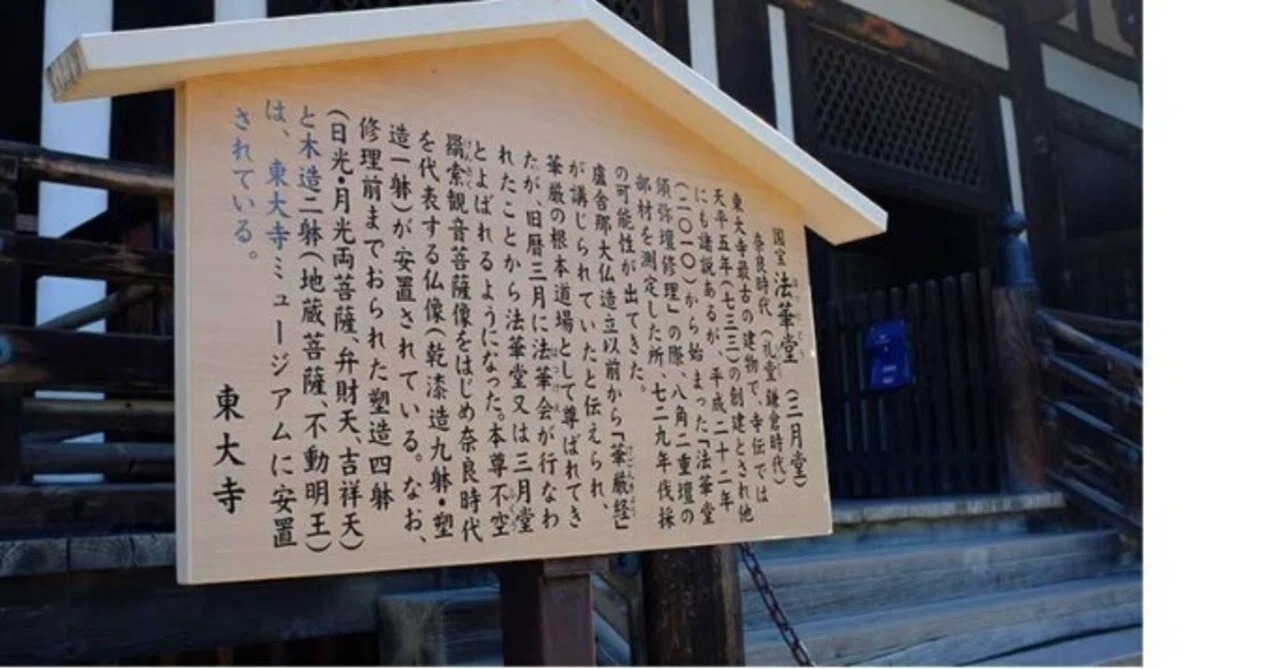 国宝 法華堂（三月堂）
奈良時代（礼堂 鎌倉時代）
東大寺最古の建物で、寺伝では
天平五年（七三三）の創建とされ他
にも諸説あるが、平成二十二年
（二〇一〇）から始まった「法華堂
須弥壇修理」の際、八角二重壇の
部材を測定した所、七二九年伐採
の可能性が出てきた。
盧舎那大仏造立以前から「華厳経」
が講じられていたと伝えられ、
華厳の根本道場として尊ばれてき
たが、旧暦三月に法華会が行なわ
れたことから法華堂又は三月堂
とよばれるようになった。本尊不空
羂索観音菩薩像をはじめ奈良時代
を代表する仏像（乾漆造九躰・塑
造一躰）が安置されている。なお、
修理前までおられた塑造四躰
（日光・月光両菩薩、弁財天、吉祥天）
と木造二躰（地蔵菩薩、不動明王）
は、東大寺ミュージアムに安置
されている。
東大寺